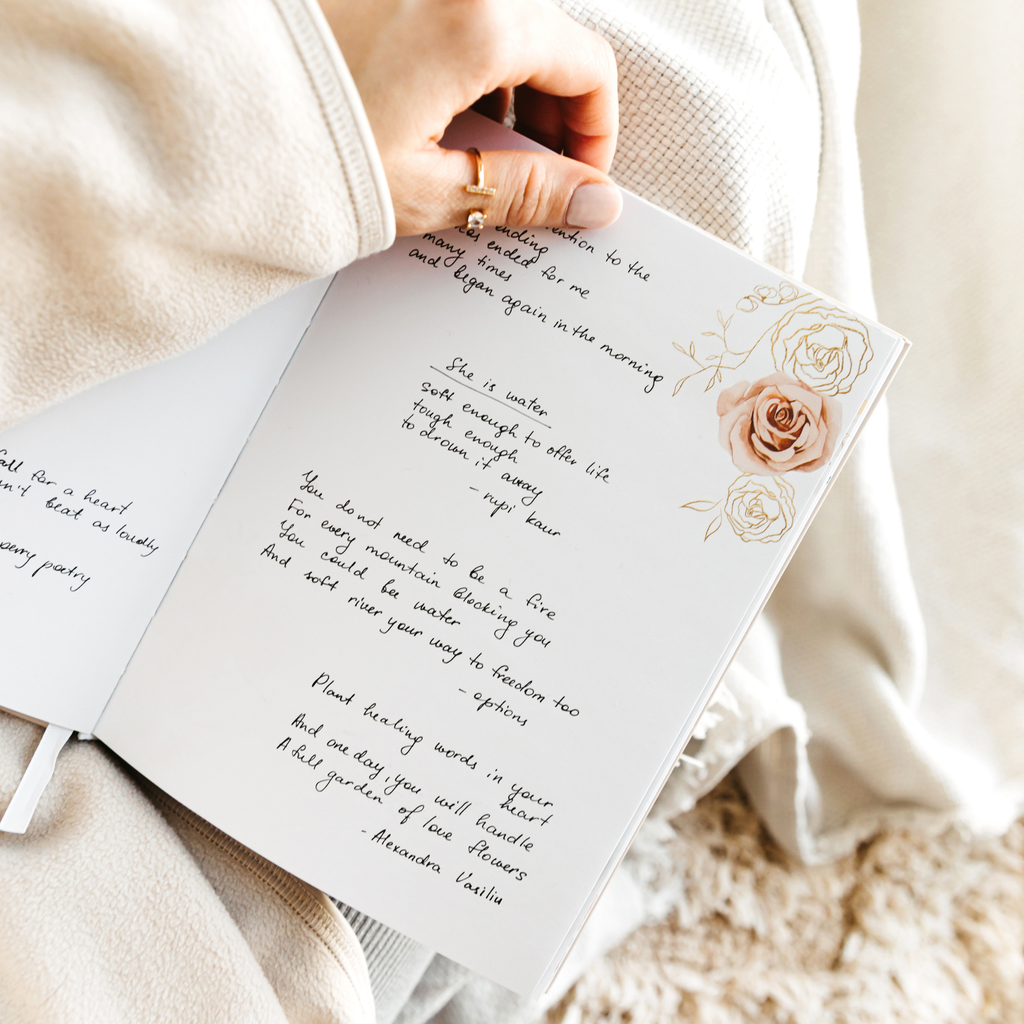 all for a heart
beat as loudly
poetry
ending
to the
ended for me
many times
and began again in the morning
She is water
soft enough to offer life
tough enough
to drown it away
- rupi kaur
You do not need to be a fire
For every mountain blocking you
You could be water
And soft river your way to freedom too
- options
Plant healing words in your
heart
And one day, you will handle
A full garden of love flowers
- Alexandra Vasiliu